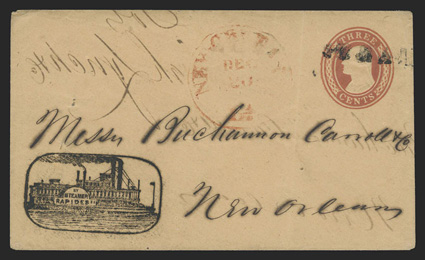 NEW ORLEANS
DEC
20
THREE
CENTS
Messrs Buchannon Carroll & Co
New Orleans
BY
STEAMER
RAPIDES